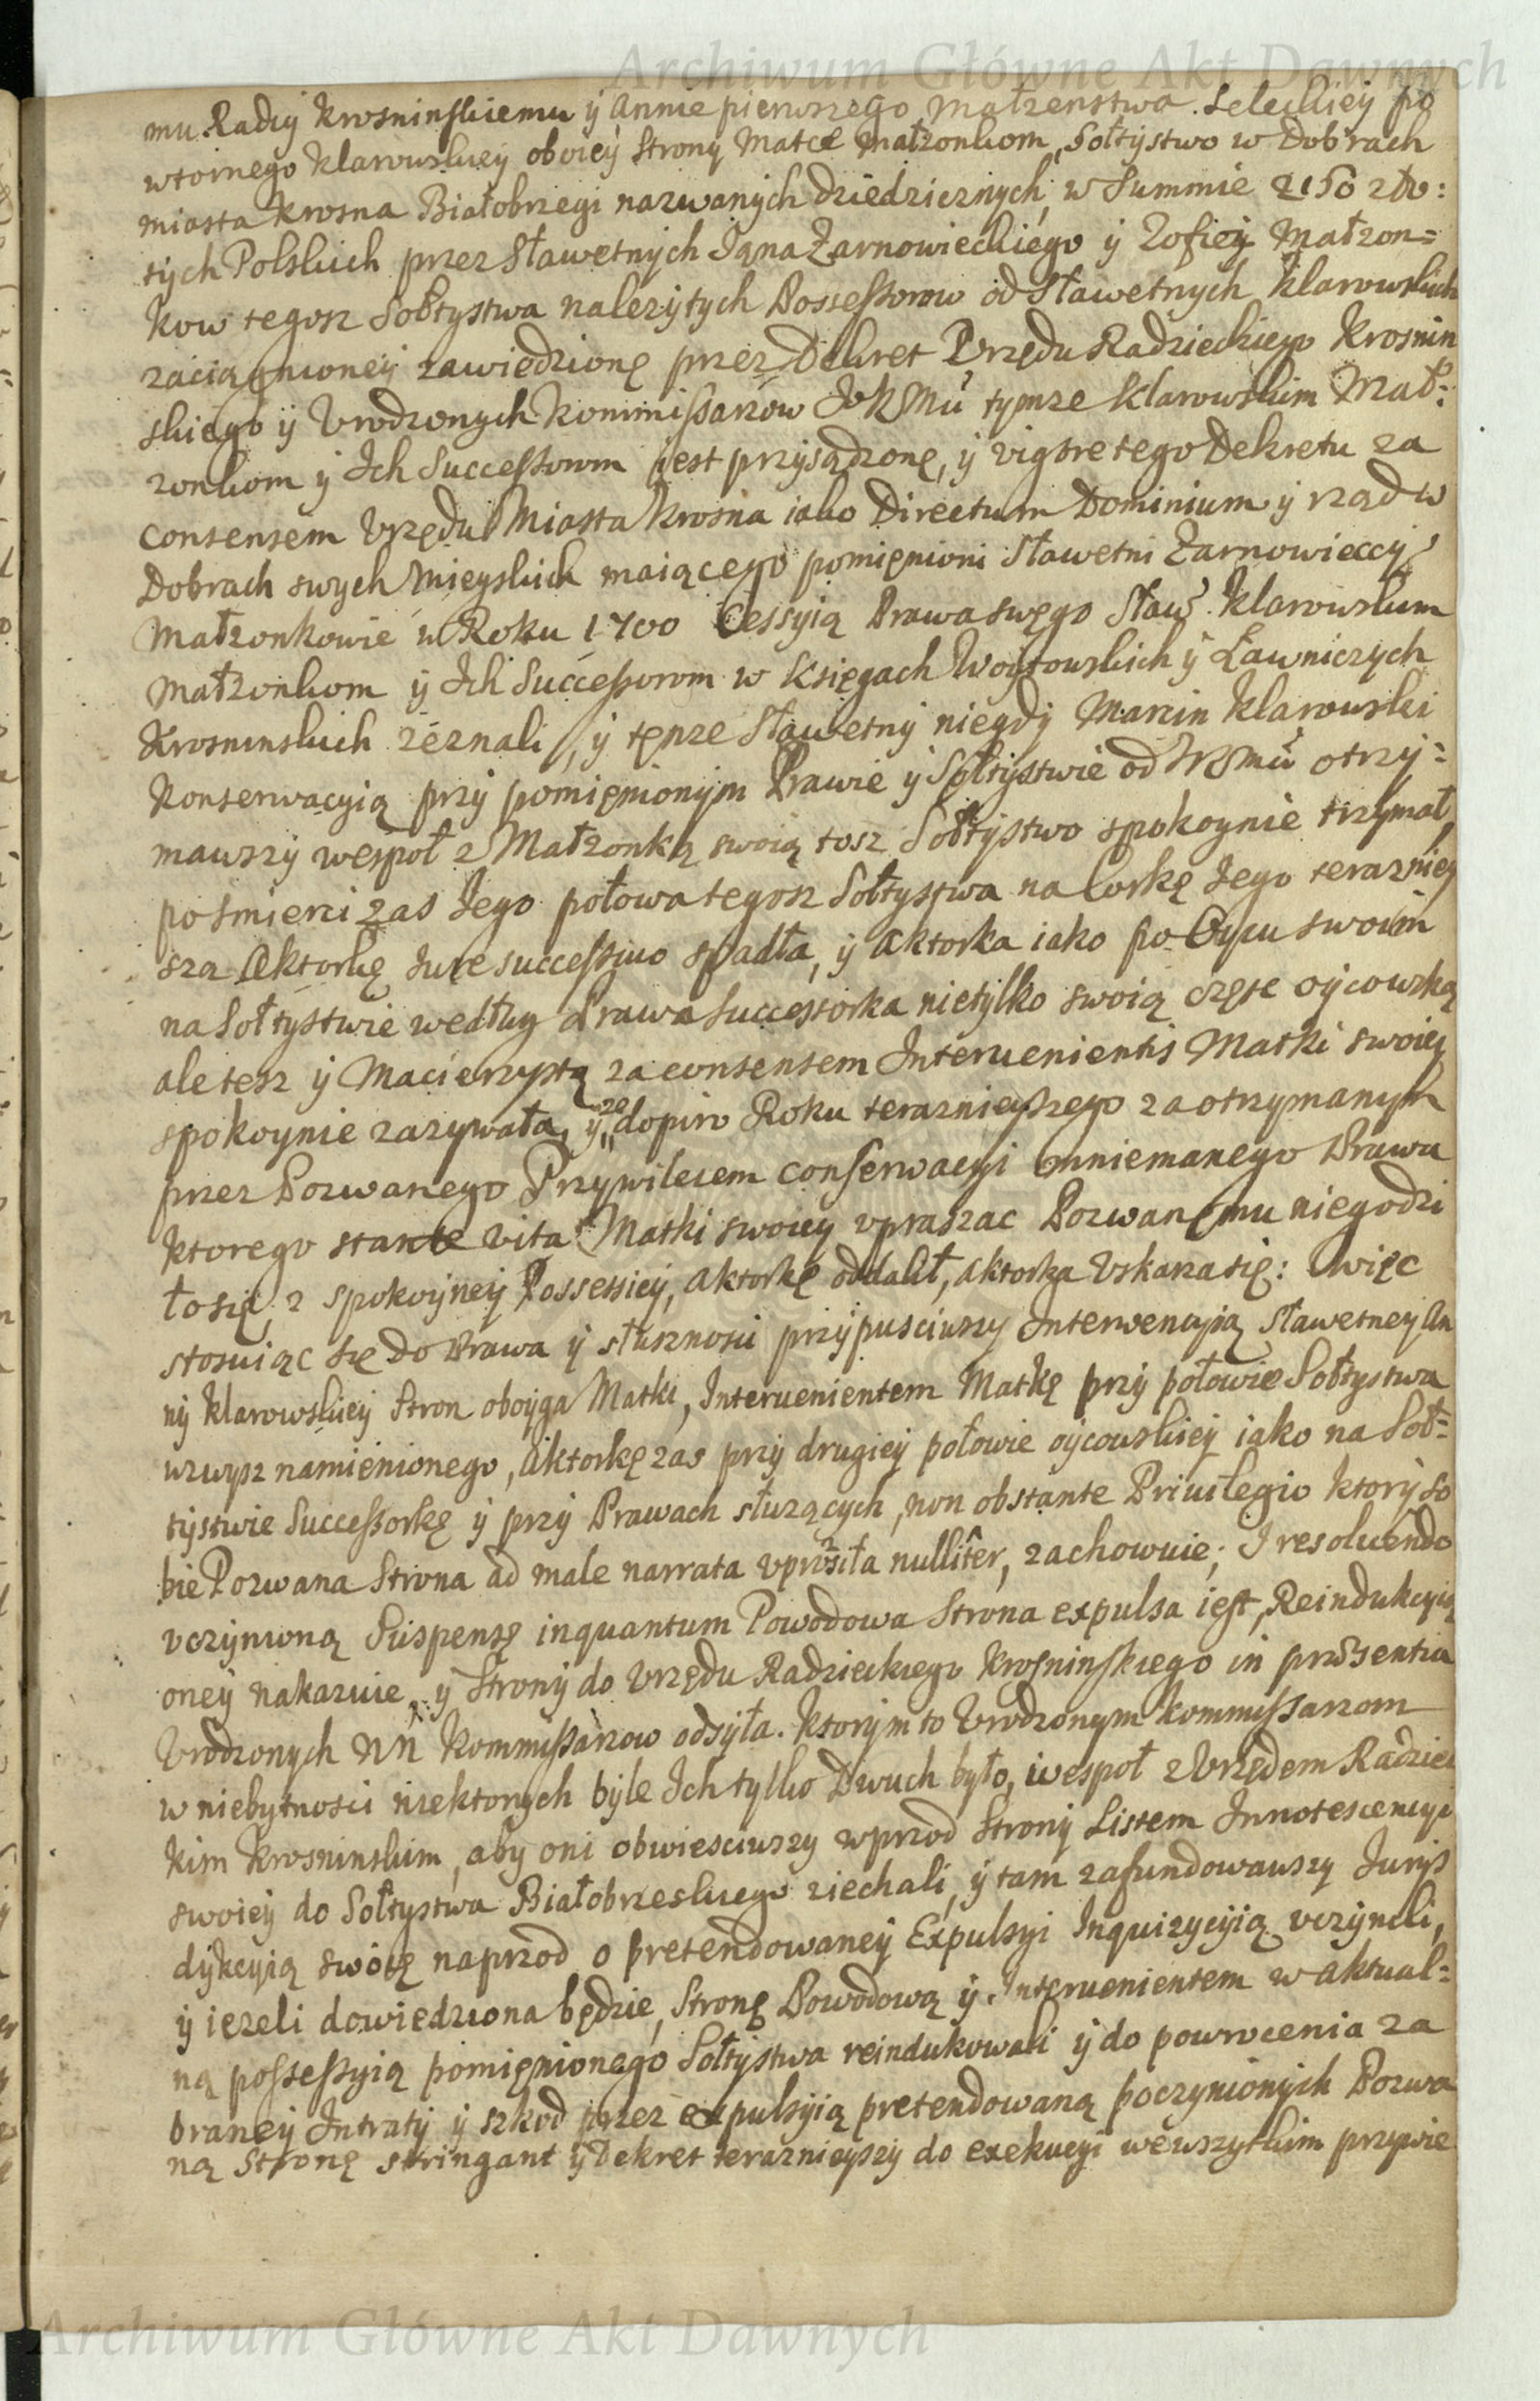 Archiwum Główne Akt Dawnych
mu Radcy Krosninskiemu ÿ Annie pierwszego Małzenstwa Seleckiey po
wtornego Klarowskiey oboiey Strony Matce Małzonkom, Sołtystwo w Dobrach
miasta Krosna Białobrzegi nazwanych dziedzicznych, w Summie 2150 zło:
tych Polskich przez Sławetnych Iana Zarnowieckiego ÿ Zofiey Małzon=
kow tegosz Sołtystwa nalezytych Possessorow od Sławetnych Klarowskich
zaciągnioney zawiedzione przez Dekret Vrzędu Radzieckiego Krosnin
skiego ÿ Vrodzonych Kommissarzow JKMci tymze Klarowskim Mał:
zonkom ÿ Ich Successorom iest przysądzone, ÿ vigore tego Dekretu za
consensem Vrzędu Miasta Krosna iako Directum Dominium ÿ rząd w
Dobrach swych Mieyskich maiącego pomienioni Sławetni Zarnowieccy
Małzonkowie w Roku 1700 Cessyią Prawa swego Sław. Klarowskim
Małzonkom ÿ Ich Successorom w Księgach Woytowskich ÿ Ławniczych
Krosninskich zeznali, ÿ tenze Sławetny niegdy Marcin Klarowski
Konserwacyią przy pomienionym Prawie ÿ Sołtystwie od JKMci otrzy=
mawszy wespoł z Małzonką swoią tosz Sołtystwo spokoynie trzymał,
po smierci zas Iego połowa tegosz Sołtystwa na Corkę Iego terazniey
szą Aktorkę Iure successivo spadła, ÿ Aktorka iako po Oycu swoim
na Sołtystwie według Prawa Successorka nietylko swoią częsc oycowską
ale tesz ÿ Macierzystą za consensem Intervenientis Matki swoiey
spokoynie zazywała, ÿ ze dopiro Roku teraznieyszego za otrzymanym
przez Pozwanego Przywileiem conserwacyi mniemanego Prawa
ktorego stante vita Matki swoiey vpraszac Pozwanemu niegodzi
ło się, z spokoyney Possessiey, Aktorkę oddalił, Aktorka Vskarza się: Więc
stosuiąc się do Prawa ÿ słusznosci przypusciwszy Interwencyią Sławetney An
ny Klarowskiey Stron oboyga Matki, Intervenientem Matkę przy połowie Sołtystwa
wzwysz namienionego, Aktorkę zas przy drugiey połowie oycowskiey iako na Soł=
tystwie Successorkę ÿ przy Prawach słuzących, non obstante Privilegio ktory so
bie Pozwana Strona ad male narrata vprosiła nulliter, zachowuie; I resolvendo
vczynioną Suspensę inquantum Powodowa Strona expulsa iest, Reindukcyią
oney nakazuie, ÿ Strony do Vrzędu Radzieckiego Krosninskiego in præsentia
Vrodzonych NN Kommissarzow odsyła. Ktorym to Vrodzonym Kommissarzom
w niebytnosci niektorych byle Ich tylko Dwuch było, wespoł z Vrzędem Radziec
kim Krosninskim, aby oni obwiesciwszy wprzod Strony Listem Innotescencyi
swoiey do Sołtystwa Białobrzeskiego ziechali, ÿ tam zafundowawszy Jurys
dykcyią swoię naprzod o pretendowaney Expulsyi Inquizycyią vczynili,
ÿ iezeli dowiedziona będzie, Stronę Powodową ÿ Intervenientem w aktual=
ną possessyią pomienionego Sołtystwa reindukowali ÿ do powrocenia za
braney Intraty ÿ szkod przez expulsyią pretendowaną poczynionych Pozwa
ną Stronę stringant ÿ Dekret teraznieyszy do exekucyi wewszytkim przywie
Archiwum Główne Akt Dawnych